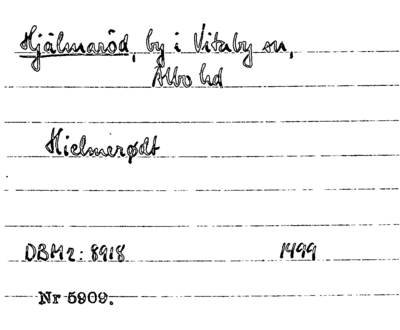 Hjälmaröd, by i Vitaby sn,
Albo hd
Hielmerødt
DBM2: 8918 1499
Nr 5909.